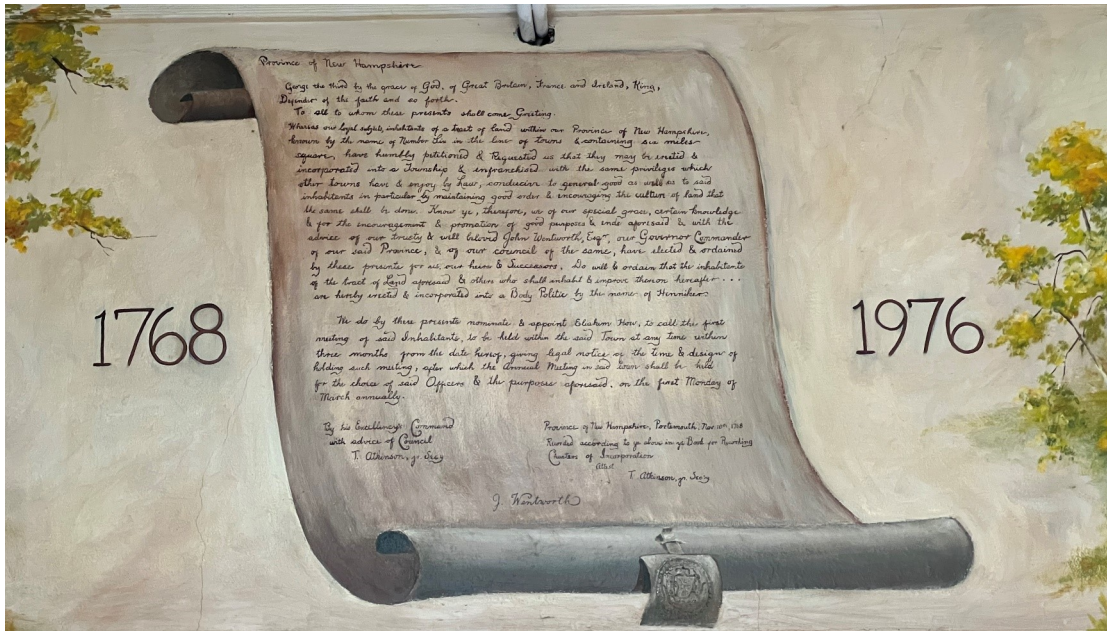 Province of New Hampshire
George the third by the grace of God, of Great Britain, France and Ireland, King,
Defender of the faith and so forth.
To all to whom these presents shall come, Greeting.
Whereas our loyal subjects, inhabitants of a tract of land within our Province of New Hampshire,
known by the name of Number Six in the line of towns & containing six miles
square, have humbly petitioned & Requested us that they may be erected &
incorporated into a Township & enfranchised with the same privileges which
other towns have & enjoy by Law, conducive to general good as well as to said
inhabitants in particular by maintaining good order & encouraging the culture of land that
the same shall be done. Know ye, therefore, we of our special grace, certain knowledge
& for the encouragement & promotion of good purposes & ends aforesaid & with the
advice of our trusty & well beloved John Wentworth, Esqr, our Governor Commander
of our said Province, & of our council of the same, have elected & ordained
by these presents for us, our heirs & Successors. Do will & ordain that the inhabitants
of the tract of Land aforesaid & others who shall inhabit & improve thereon hereafter...
are hereby erected & incorporated into a Body Politic by the name of Henniker.
We do by these presents nominate & appoint Eliakim How, to call the first
meeting of said Inhabitants, to be held within the said Town at any time within
three months from the date hereof, giving legal notice of the time & design of
holding such meeting, after which the Annual Meeting in said town shall be held
for the choice of said Officers & the purposes aforesaid, on the first Monday of
March annually.
1768
1976
By his Excellency's Command
with advice of Council
T. Atkinson, jr. Secy
Province of New Hampshire, Portsmouth, Nov 10th, 1768
Recorded according to ye above in ye Book for Recording
Charters of Incorporation
Attest
T. Atkinson, jr. Secy
J. Wentworth